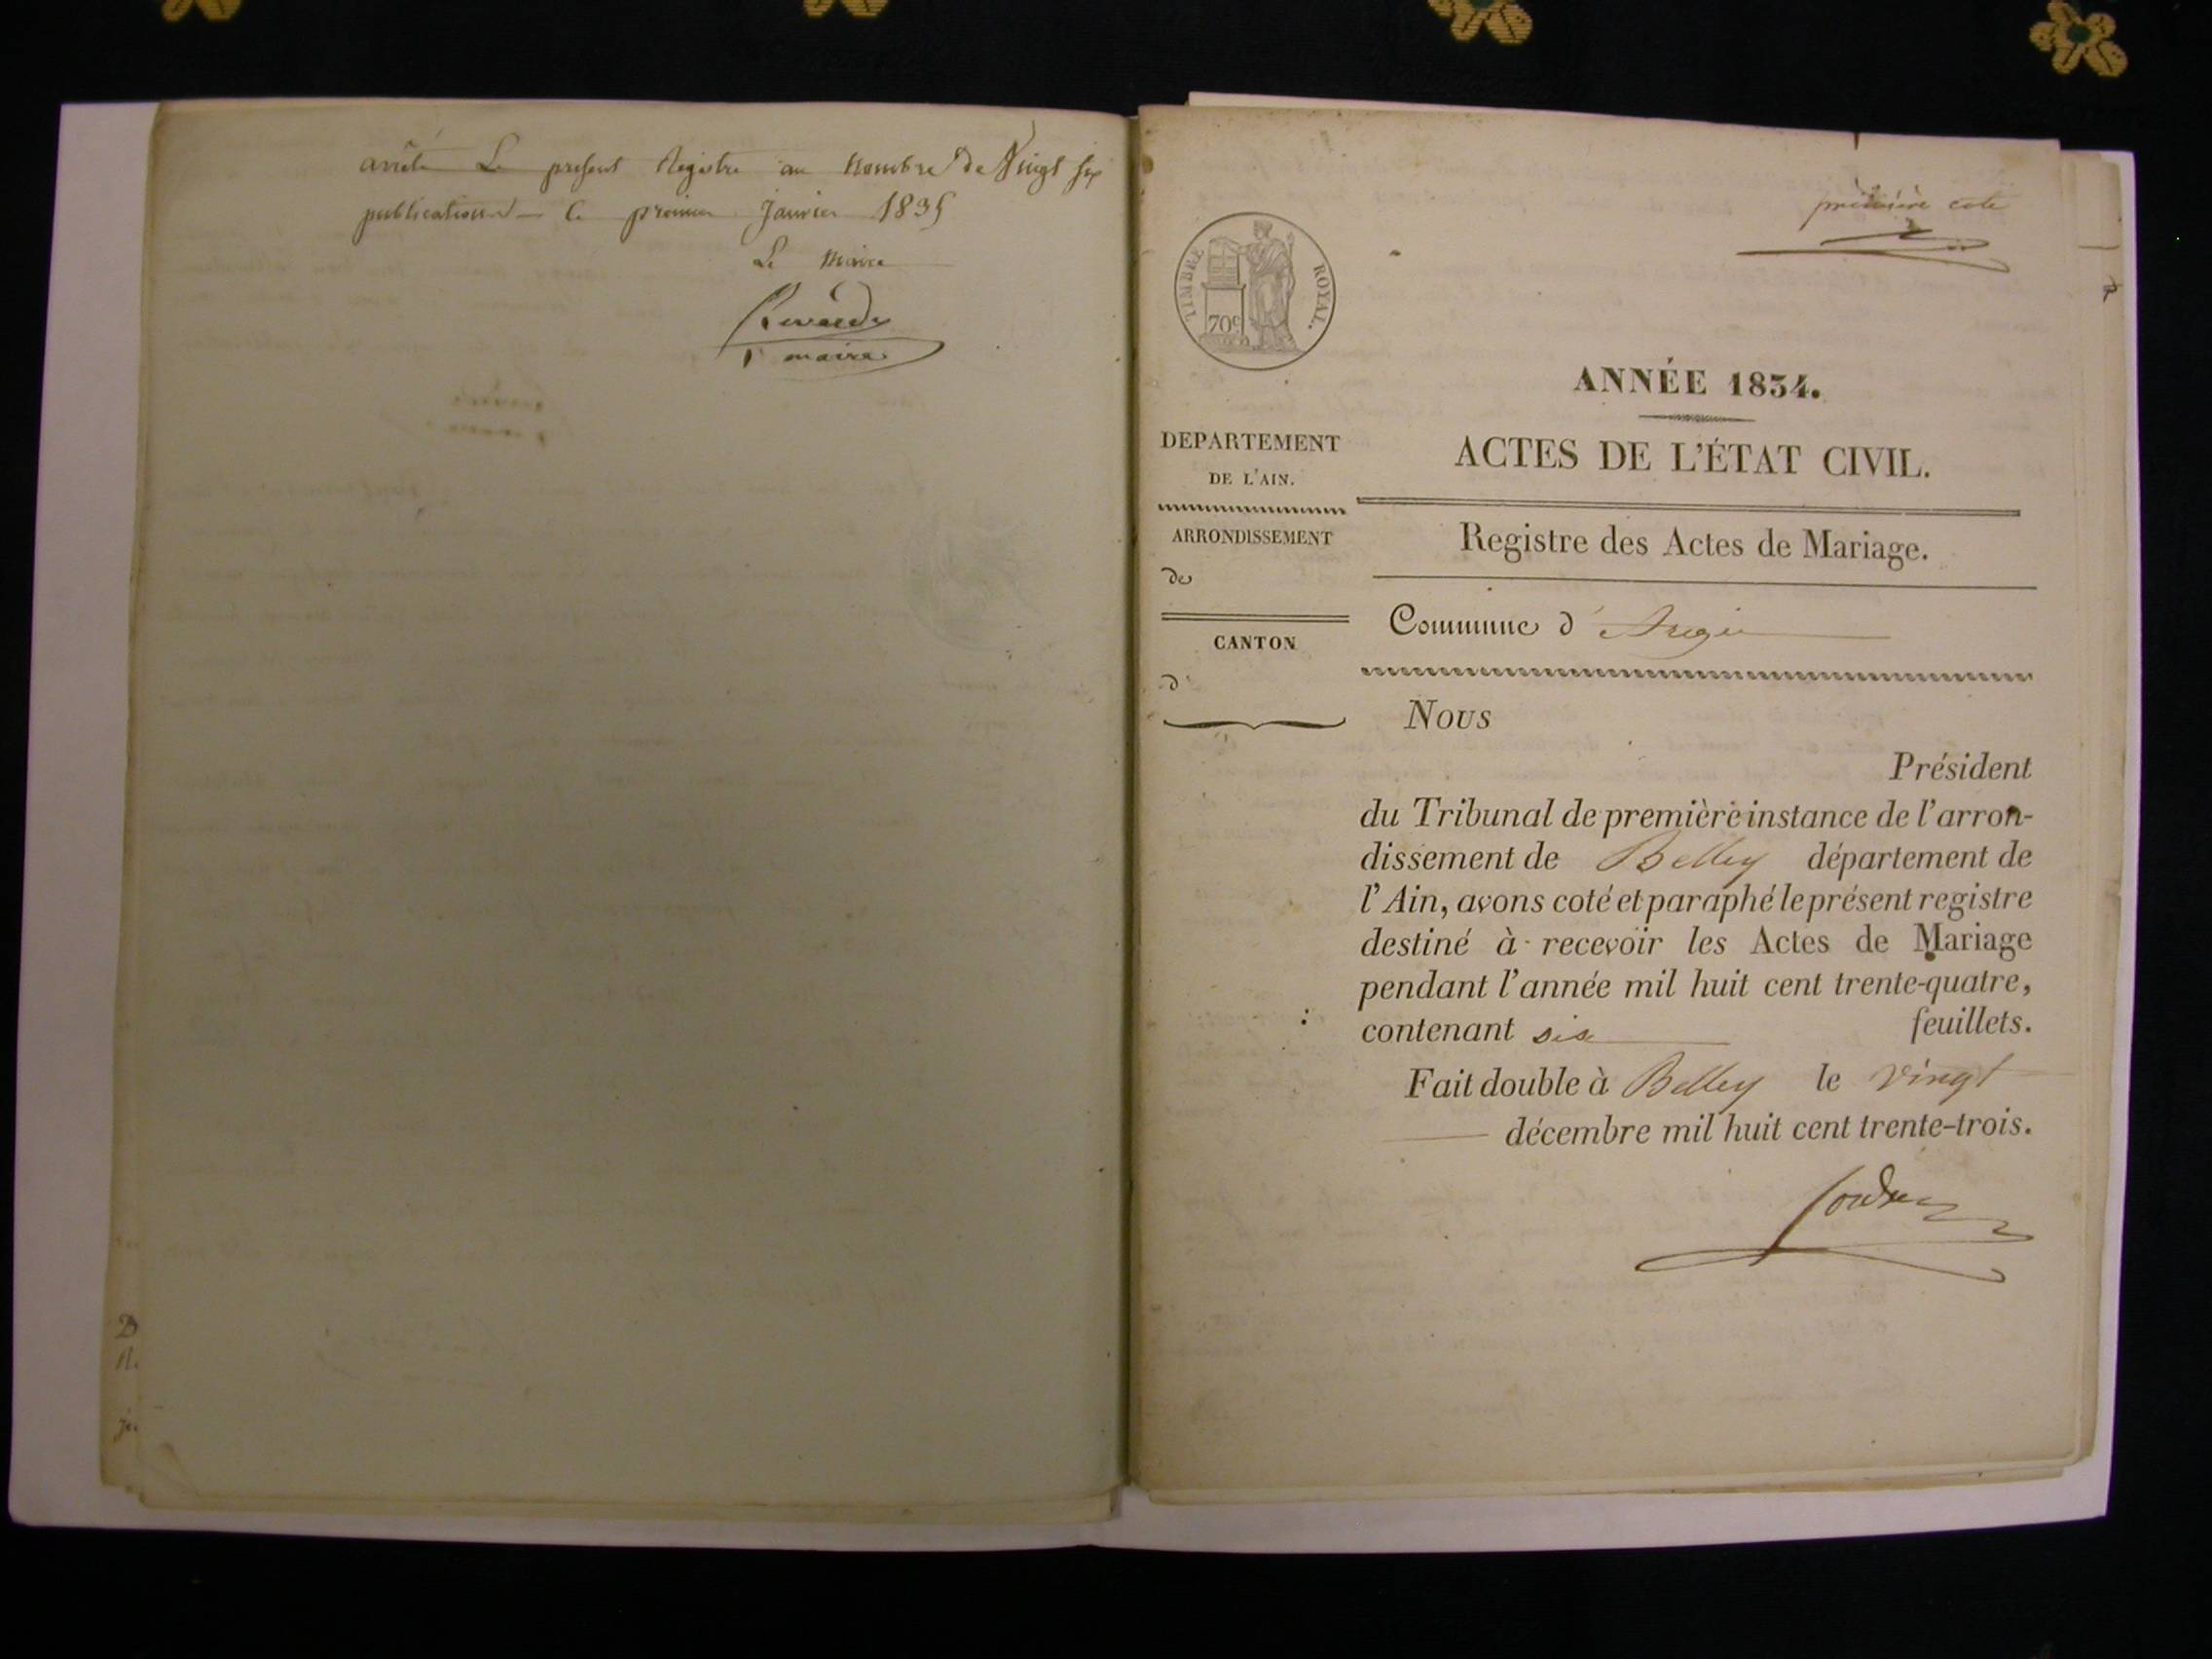 arrêté Le present Registre au nombre de Vingt six
publications le premier Janvier 1835
Le Maire
maire
première cote
TIMBRE ROYAL.
70c
ANNÉE 1834.
ACTES DE L'ÉTAT CIVIL.
DEPARTEMENT
DE L'AIN.
ARRONDISSEMENT
de
CANTON
d'
Registre des Actes de Mariage.
Commune d'
Nous
Président
du Tribunal de première instance de l'arron-
dissement de Belley département de
l'Ain, avons coté et paraphé le présent registre
destiné à recevoir les Actes de Mariage
pendant l'année mil huit cent trente-quatre,
contenant six feuillets.
Fait double à Belley le vingt
décembre mil huit cent trente-trois.